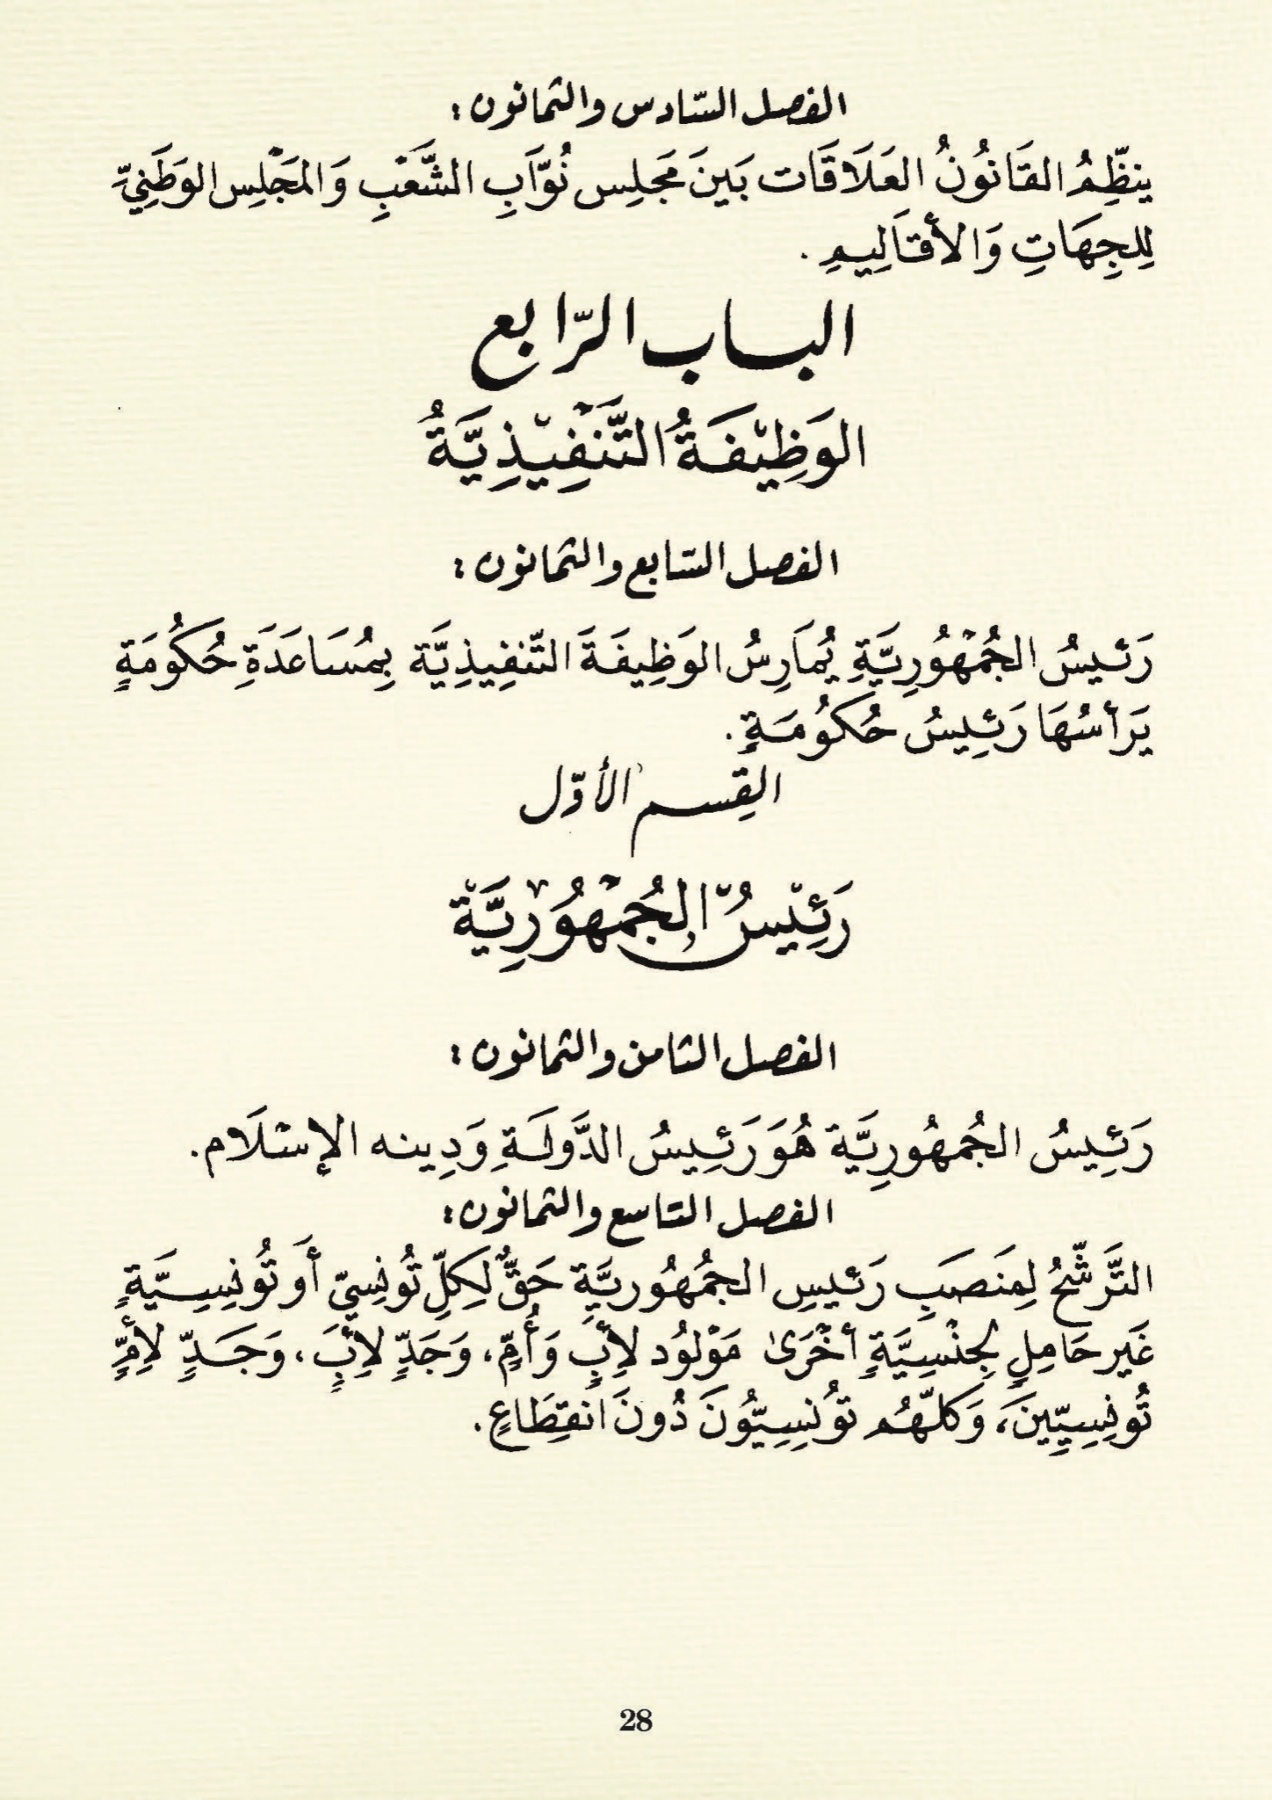 الفصل السّادس والثمانون :
ينظِّمُ القَانُونُ العَلَاقَات بَينَ مَجلِس نُوَّابِ الشَّعْبِ وَالمَجْلِس الوَطَنِيِّ
لِلجِهَاتِ وَالأقَالِيمِ .
الباب الرّابع
الوَظِيْفَةُ التَّنْفِيْذِيَّةُ
الفصل السّابع والثمانون :
رَئيسُ الجُمْهُورِيَّةِ يُمَارِسُ الوَظِيفَةَ التّنفِيذِيَّة بِمُسَاعَدَةِ حُكُومَةٍ
يَرَأسُهَا رَئِيسُ حُكُومَةٍ .
القِسم الأوّل
رَئِيْسُ الجُمْهُورِيَّة
الفصل الثامن والثمانون :
رَئِيسُ الجُمهُورِيَّة هُوَ رَئِيسُ الدَّولَةِ وَدِينه الإسْلَام .
الفصل التاسع والثمانون :
التَّرشّحُ لِمَنصَبِ رَئيسِ الجمُهُوريَّةِ حَقٌّ لِكلِّ تُونِسِيّ أَو تُونِسِيَّةٍ
غَير حَامِلٍ لِجِنْسِيَّةٍ أخْرَىٰ مَوْلُود لأبٍ وَأُمٍّ، وَجَدٍّ لأبٍ، وَجَدٍّ لأمٍّ
تُونِسِيِّينَ، وَكلّهُم تُونِسِيُّونَ دُونَ انقِطَاعٍ .
28